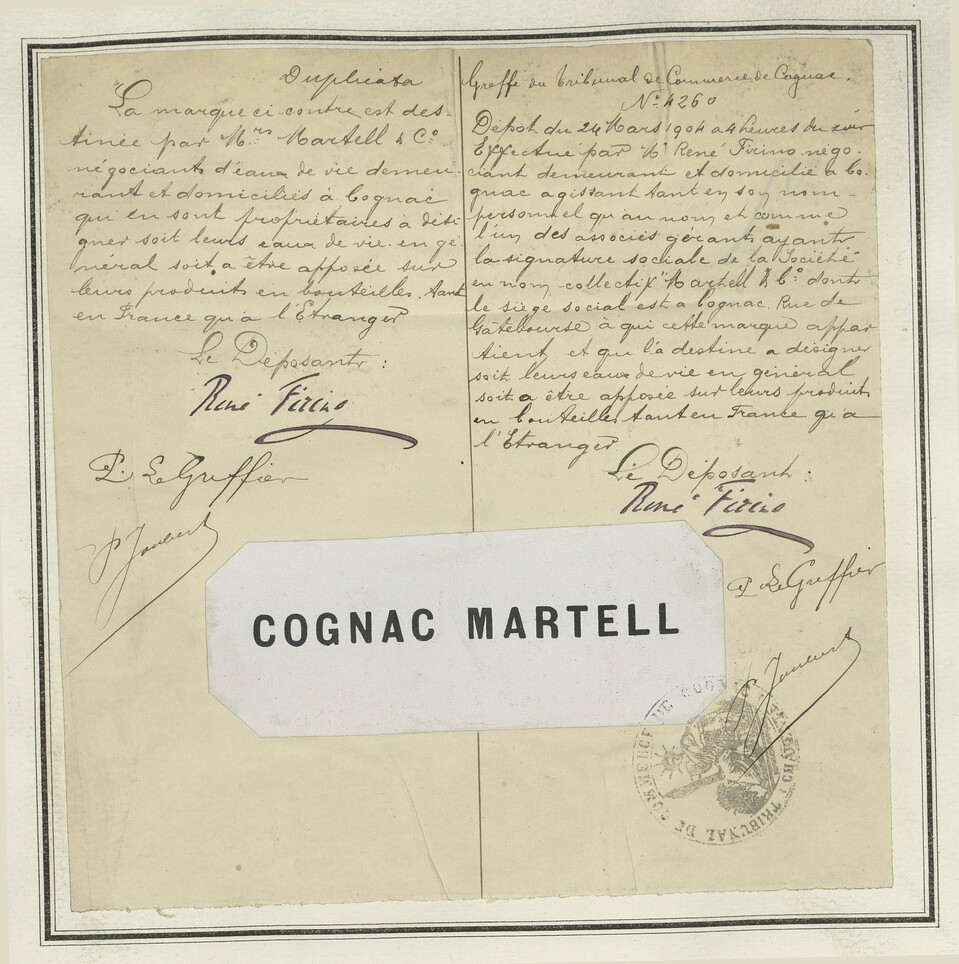 Duplicata
La marque ci-contre est des-
tinée par Mrs Martell & Co
négociants d'eaux de vie demeu-
rant et domiciliés à Cognac
qui en sont propriétaires à dési
gner soit leurs eaux de vie en gé
néral soit a être apposée sur
leurs produits en bouteilles. tant
en France qu'à l'Etranger
Le Déposant :
René Firino
P. Le Greffier
P Joubert
Greffe du Tribunal de Commerce de Cognac.
No 4260
Dépot du 24 Mars 1904 a 4 heures du soir
Effectué par Mr René Firino négo-
ciant demeurant et domicilié à Co-
gnac agissant tant en son nom
personnel qu'au nom et comme
l'un des associés gérants ayant
la signature sociale de la Société
en nom collectif "Martell & Co dont
le siège social est a Cognac. Rue de
Gâtebourse à qui cette marque appar
tient et qui l'a destine a désigner
soit leurs eaux de vie en général
soit a être apposée sur leurs produits
en bouteilles tant en France qu'a
l'Etranger
Le Déposant :
René Firino
P. Le Greffier
P Joubert
COGNAC MARTELL
TRIBUNAL DE COMMERCE DE COGNAC